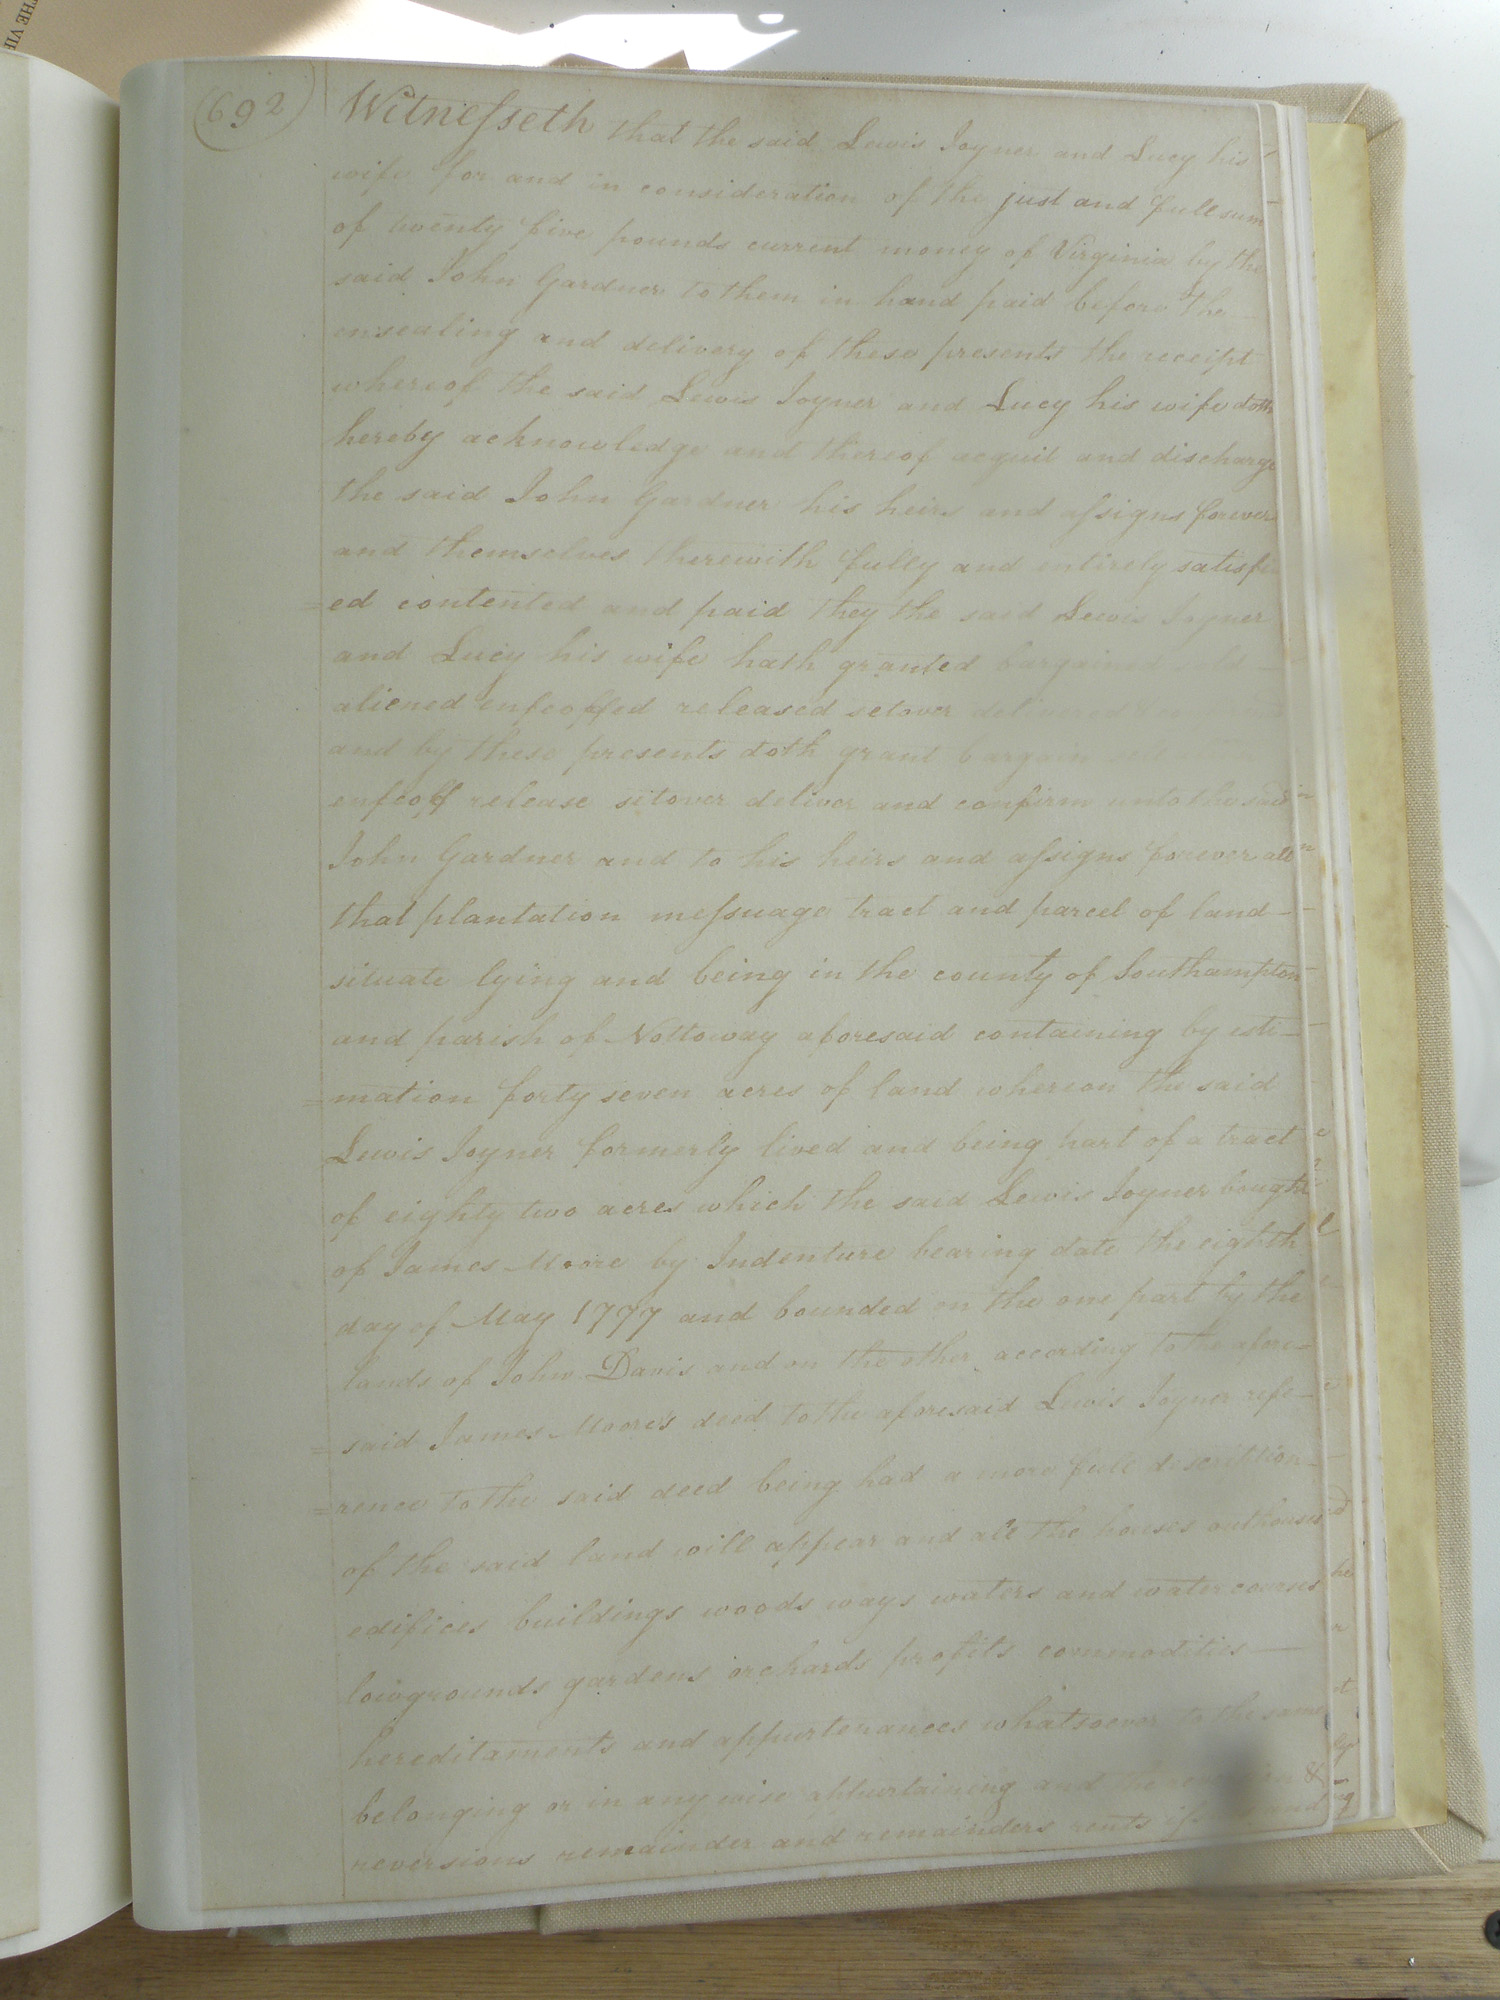 THE VIR
(692)
Witneſseth that the said Lewis Joyner and Lucy his
wife for and in consideration of the just and full sum
of twenty five pounds current money of Virginia by the
said John Gardner to them in hand paid before the
ensealing and delivery of these presents the receipt
whereof the said Lewis Joyner and Lucy his wife doth
hereby acknowledge and thereof acquit and discharge
the said John Gardner his heirs and aſsigns forever
and themselves therewith fully and entirely satisfi
=ed contented and paid they the said Lewis Joyner
and Lucy his wife hath granted bargained
aliened enfeoffed released setover delivered
and by these presents doth grant bargain
enfeoff release setover deliver and confirm unto the said
John Gardner and to his heirs and aſsigns forever all
that plantation meſsuage tract and parcel of land–
situate lying and being in the county of Southampton
and parish of Nottoway aforesaid containing by esti–
=mation forty seven acres of land whereon the said
Lewis Joyner formerly lived and being part of a tract
of eighty two acres which the said Lewis Joyner bought
of James Moore by Indenture bearing date the eighth
day of May 1777 and bounded on the one part by the
lands of John Davis and on the other according to the afore–
=said James Moore's deed to the aforesaid Lewis Joyner refe–
=rence to the said deed being had a more full description–
of the said land will appear and all the houses outhouses
edifices buildings woods ways waters and water courses
lowgrounds gardens orchards profits commodities —
hereditaments and appurtenances whatsoever to the same
belonging or in any wise appurtaining and the &
reversions remainder and remainders rents and